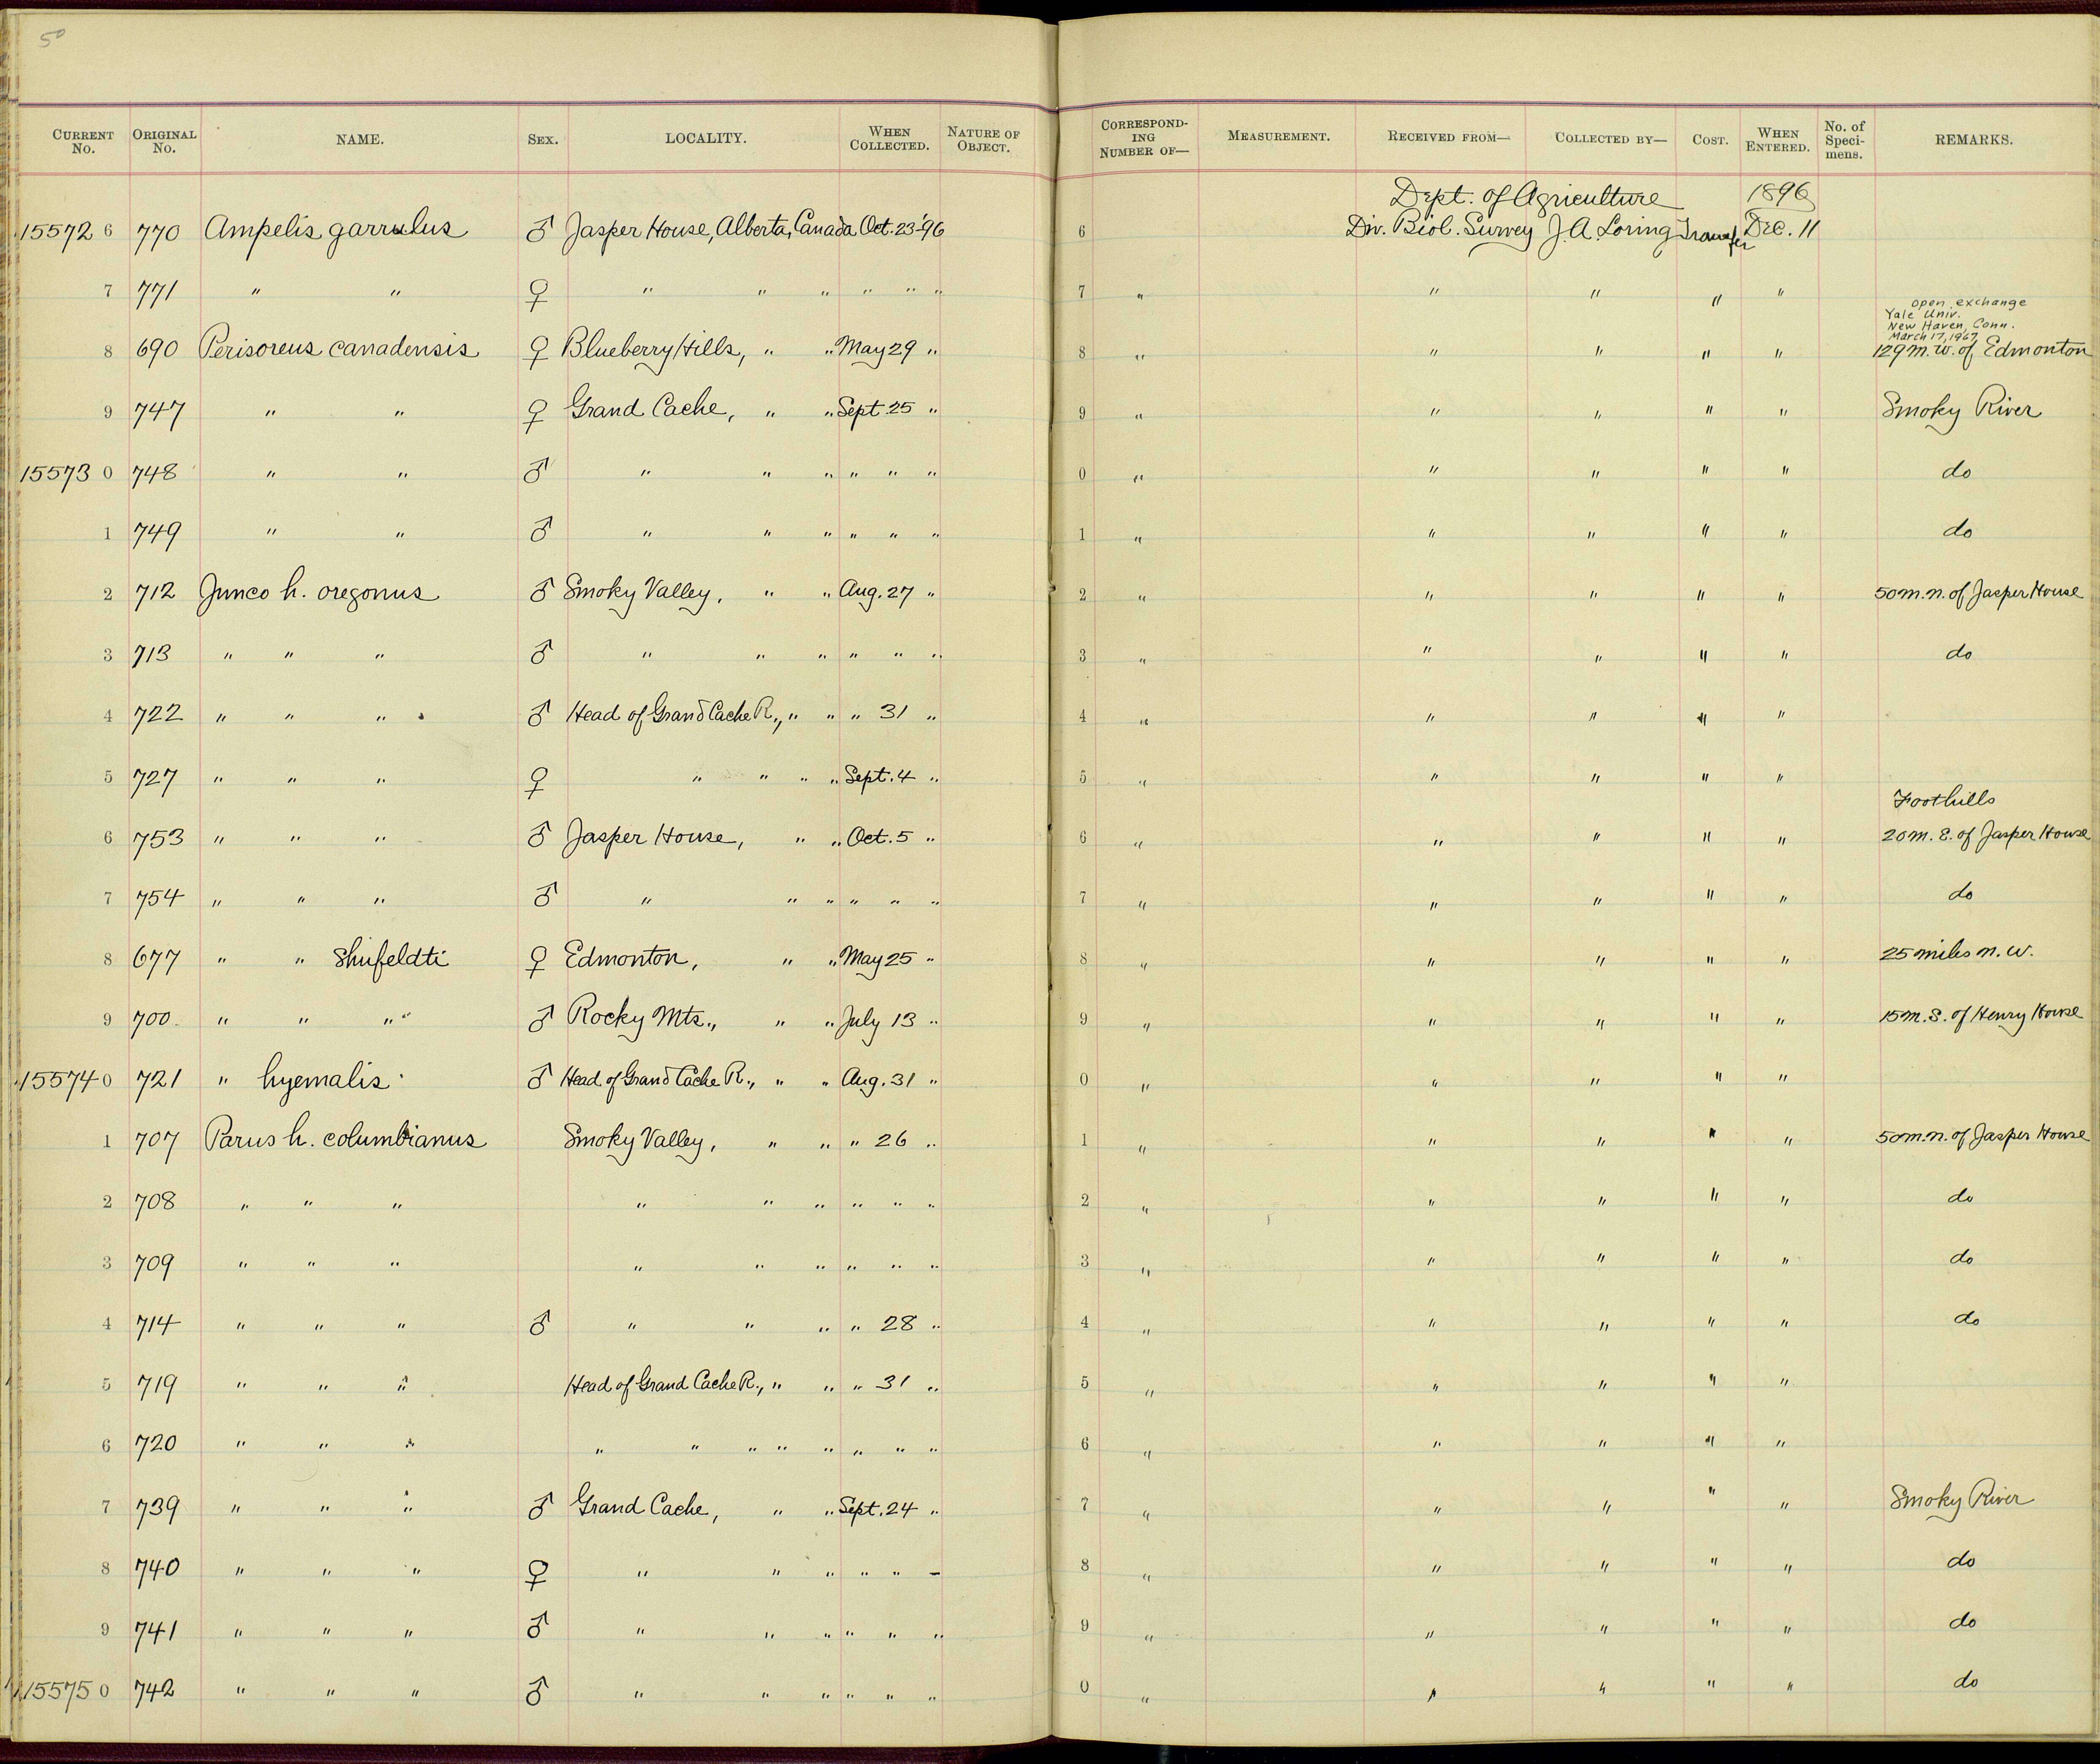 50
CURRENT No. ORIGINAL No. NAME. SEX. LOCALITY. WHEN COLLECTED. NATURE OF OBJECT. CORRESPONDING NUMBER OF— MEASUREMENT. RECEIVED FROM— COLLECTED BY— COST. WHEN ENTERED. No. of Specimens. REMARKS.
Dept. of Agriculture 1896
155726 770 Ampelis garrulus ♂ Jasper House, Alberta, Canada Oct. 23 '96 6 Div. Biol. Survey J. A. Loring Transfer Dec. 11
7 771 " " ♀ " " " " " " 7 " " " " "
open exchange
Yale Univ.
New Haven, Conn.
March 17, 1967
8 690 Perisoreus canadensis ♀ Blueberry Hills, " " May 29 " 8 " " " " " 129 m. w. of Edmonton
9 747 " " ♀ Grand Cache, " " Sept. 25 " 9 " " " " " Smoky River
155730 748 " " ♂ " " " " " " 0 " " " " " do
1 749 " " ♂ " " " " " " 1 " " " " " do
2 712 Junco h. oregonus ♂ Smoky Valley, " " Aug. 27 " 2 " " " " " 50 m. n. of Jasper House
3 713 " " " ♂ " " " " " " 3 " " " " " do
4 722 " " " ♂ Head of Grand Cache R., " " " 31 " 4 " " " " "
5 727 " " " ♀ " " " " Sept. 4 " 5 " " " " "
Foothills
6 753 " " " ♂ Jasper House, " " Oct. 5 " 6 " " " " " 20 m. E. of Jasper House
7 754 " " " ♂ " " " " " " 7 " " " " " do
8 677 " " shufeldti ♀ Edmonton, " " May 25 " 8 " " " " " 25 miles n. w.
9 700 " " " ♂ Rocky Mts., " " July 13 " 9 " " " " " 15 m. S. of Henry House
155740 721 " hyemalis ♂ Head of Grand Cache R., " " Aug. 31 " 0 " " " " "
1 707 Parus h. columbianus Smoky Valley, " " " 26 " 1 " " " " " 50 m. n. of Jasper House
2 708 " " " " " " " " " 2 " " " " " do
3 709 " " " " " " " " " 3 " " " " " do
4 714 " " " ♂ " " " " 28 " 4 " " " " " do
5 719 " " " Head of Grand Cache R., " " " 31 " 5 " " " " "
6 720 " " " " " " " " " " " 6 " " " " "
7 739 " " " ♂ Grand Cache, " " Sept. 24 " 7 " " " " " Smoky River
8 740 " " " ♀ " " " " " – 8 " " " " " do
9 741 " " " ♂ " " " " " " 9 " " " " " do
155750 742 " " " ♂ " " " " " " 0 " " " " " do